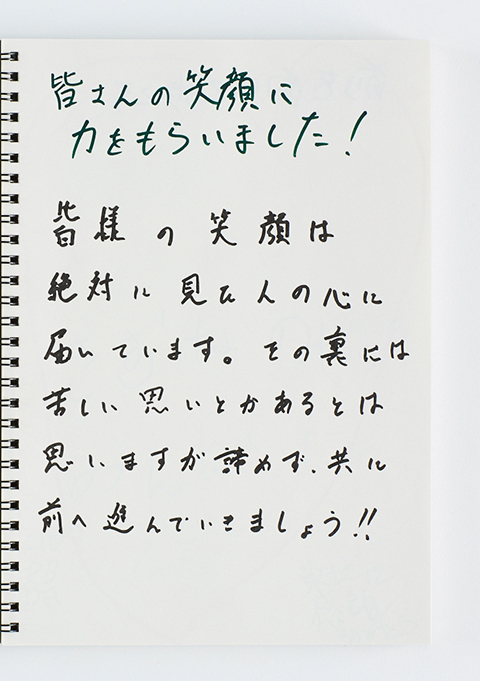 皆さんの笑顔に
力をもらいました!
皆様の笑顔は
絶対に見た人の心に
届いています。その裏には
苦しい思いとかあるとは
思いますが諦めず、共に
前へ進んでいきましょう!!